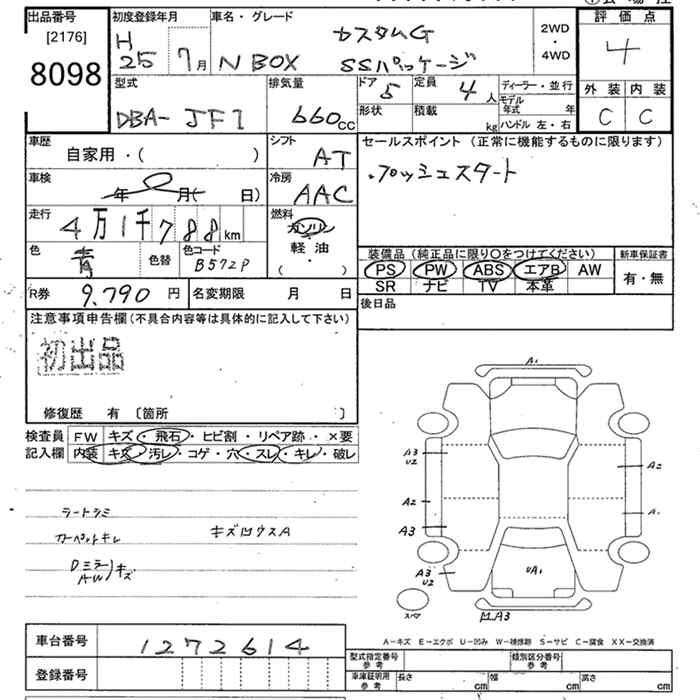 出品番号
[2176]
8098
初度登録年月
H
25 7月
車名・グレード
カスタムG
N BOX SSパッケージ
2WD
・
4WD
評価点
4
外装 内装
C C
型式
DBA- JF1
排気量
660cc
ドア 5
定員 4人
形状
積載 kg
ディーラー・並行
モデル
年式 年
ハンドル 左・右
車歴
自家用・( )
シフト
AT
車検
年 月( 日)
冷房
AAC
走行
4万1千788km
燃料
ガソリン
軽・油
・
( )
色
青
色替
色コード
B572P
R券 9,790 円
名変期限 月 日
セールスポイント (正常に機能するものに限ります)
・プッシュスタート
装備品 (純正品に限り○をつけてください)
PS PW ABS エアB AW
SR ナビ TV 本革
新車保証書
有・無
後日品
注意事項申告欄(不具合内容等は具体的に記入して下さい)
初出品
修復歴 有 〔箇所 〕
検査員
記入欄
FW キズ・飛石・ヒビ割・リペア跡・×要
内装 キズ・汚レ・コゲ・穴・スレ・キレ・破レ
ラートシミ
カーペットキレ
Dミラー
AW キズ
キズ凹ウスA
A1
A3
U2
A2
A3
A3
U2
A2
A1
UA1
スペア
凹A3
A−キズ E−エクボ U−凹み W−補修跡 S−サビ C−腐食 XX−交換済
車台番号
1272614
登録番号
型式指定番号
参考
類別区分番号
参考
車庫証明用
参考
長さ cm
幅 cm
高さ cm